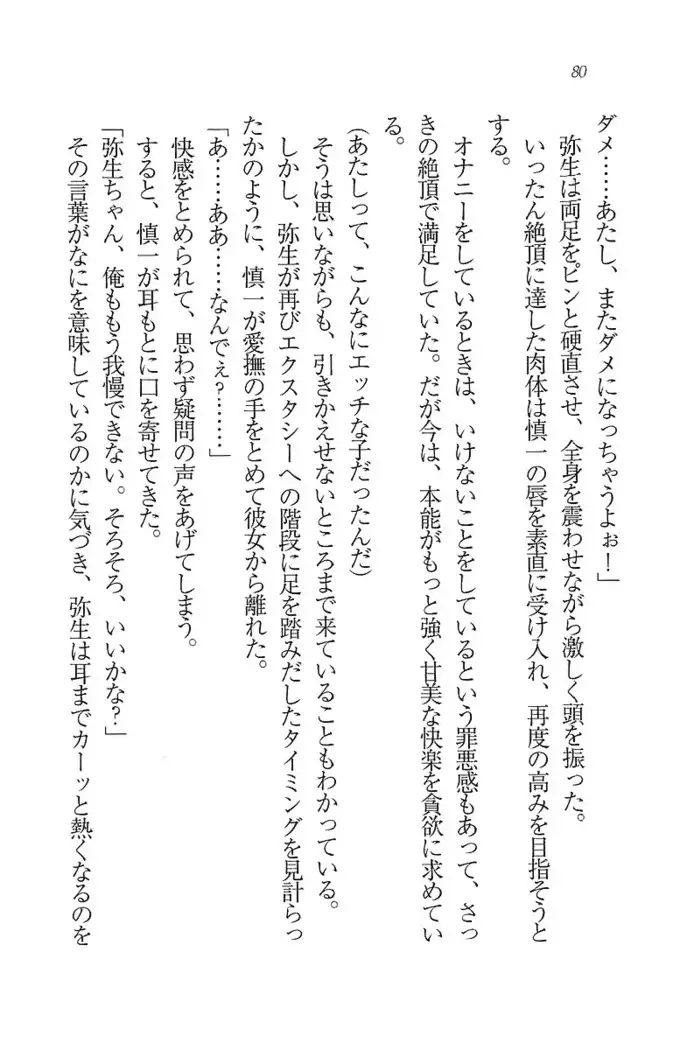 80
ダメ……あたし、またダメになっちゃうよぉ！」
　弥生は両足をピンと硬直させ、全身を震わせながら激しく頭を振った。
　いったん絶頂に達した肉体は慎一の唇を素直に受け入れ、再度の高みを目指そうと
する。
　オナニーをしているときは、いけないことをしているという罪悪感もあって、さっ
きの絶頂で満足していた。だが今は、本能がもっと強く甘美な快楽を貪欲に求めてい
る。
（あたしって、こんなにエッチな子だったんだ）
　そうは思いながらも、引きかえせないところまで来ていることもわかっている。
　しかし、弥生が再びエクスタシーへの階段に足を踏みだしたタイミングを見計らっ
たかのように、慎一が愛撫の手をとめて彼女から離れた。
「あ……ああ……なんでぇ？……」
　快感をとめられて、思わず疑問の声をあげてしまう。
　すると、慎一が耳もとに口を寄せてきた。
「弥生ちゃん、俺ももう我慢できない。そろそろ、いいかな？」
　その言葉がなにを意味しているのかに気づき、弥生は耳までカーッと熱くなるのを